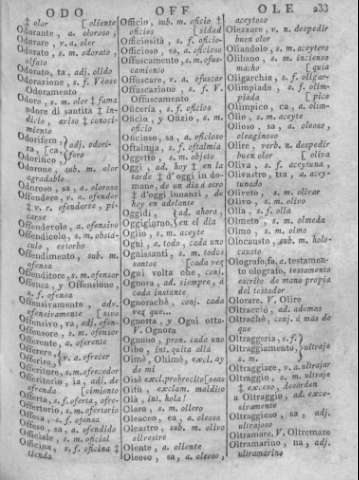 ODO OFF OLE 233
‡ olor [oliente
Odorante, a. oloroso,
Odorare, v. a. oler
Odorato, s. m. odorato,
olfato
Odorato, ta, adj. olido
Odorazione, s. f. V.
Odoramento
Odore, s. m. olor ‡ fama
odore di santità ‡ in-
dicio, aviso ‡ conoci-
miento
Odorifero,
Odorifico,
adj. odori-
fero
Odorone, sub. m. olor
agradable
Odoroso, sa, a. oloroso
Offendere, v. a. ofender
‡ v. r. ofenderse, pi-
carse
Offendevole, a. ofensivo
Offendicolo, s. m. obstá-
culo, estorbo
Offendimento, sub. m.
ofensa
Offenditore, s. m. ofensor
Offensa, y Offensione,
s. f. ofensa
Offensivamente, adv.
ofensivamente
Offensivo, va, adj. ofen-
Offensore, s. m. ofensor
Offerente, a. oferente
Offerere,
v. a. ofrecer
Offeritore, s. m. ofrecedor
Offeritorio, ia, adj. de
ofrenda
Offerta, s. f. oferta, ofre-
Offertorio, s. m. ofertorio
Offesa, s. f. ofensa
Offeso, sa, a. ofendido
Officiale, s. m. oficial
Officina, s. f. oficina ‡
tienda
Officio, sub. m. oficio ‡
oficios
Officiosità, s. f. oficio-
Officioso, sa, a. oficioso
Offuscamento, s. m. ofus-
camiento
Offuscare, v. a. ofuscar
Offuscazione, s. f. V.
Offuscamento
Oficeria, s. f. oficios
Oficio, y Ofizio, s. m.
oficio
Oficioso, sa, a. oficioso
Oftalmia, s. f. oftalmia
Oggetto, s. m. objeto
Oggi, ad. hoy ‡ en la
tarde ‡ d'oggi in do-
mane, de un dia á otro
‡ d'oggi innanzi, de
hoy en adelante
Oggidì,
Oggigiorno,
ad. ahora,
en el dia
Oglio, s. m. aceyte
Ogni, a. todo, cada uno
Ognissanti, s. m. todos
santos [cada vez
Ogni volta che, conj.
Ognora, ad. siempre, á
cada instante
Ognorachè, conj. cada
vez que...
Ognotta, y Ogni otta,
V. Ognora
Ognuno, pron. cada uno
Oibò, int. quita allá
Oimè, Ohimè, excl. ay
de mi
Oisè
Oità, exclam. maldito
Olà, int. hola!
Olare, s. m. ollero
Oleaceo, ea, a. oleoso
Oleastro, sub. m. olivo
silvestre
Olente, a. oliente
Oleoso, sa, a. oleoso,
aceytoso
Olezzare, v. n. despedir
buen olor
Oliandolo, s. m. aceytero
Olibano, s. m. incienso
macho
Oligarchia, s. f. oligar-
Olimpiada, s. f. olim-
piada
Olimpico, ca, a. olim-
Olio, s. m. aceyte
Olioso, sa, a. oleoso,
oleaginoso
Olire, verb. n. despedir
buen olor [oliva
Oliva, s. f. aceytuna,
Olivastro, tra, a. acey-
tunado
Oliveto, s. m. olivar
Olivo, s. m. olivo
Olla, s. f. olla
Olmeto, s. m. olmeda
Olmo, s. m. olmo
Olocausto, sub. m. holo-
causto
Olografo, fa, a. testamen-
to olografo, testamento
escrito de mano propia
del testador
Olorare, V. Olire
Oltracciò, ad. además
Oltrachè, conj. á más de
que
Oltraggeria, s. f.
Oltraggiamento,
s. m.
ultraje
Oltraggiare, v. a. ultrajar
Oltraggio, s. m. ultraje
a Oltraggio, ad. exce-
sivamente
Oltraggioso, sa, adj.
ultrajoso
Oltramare, V. Oltremare
Oltramarino, na, adj.
ultramarino